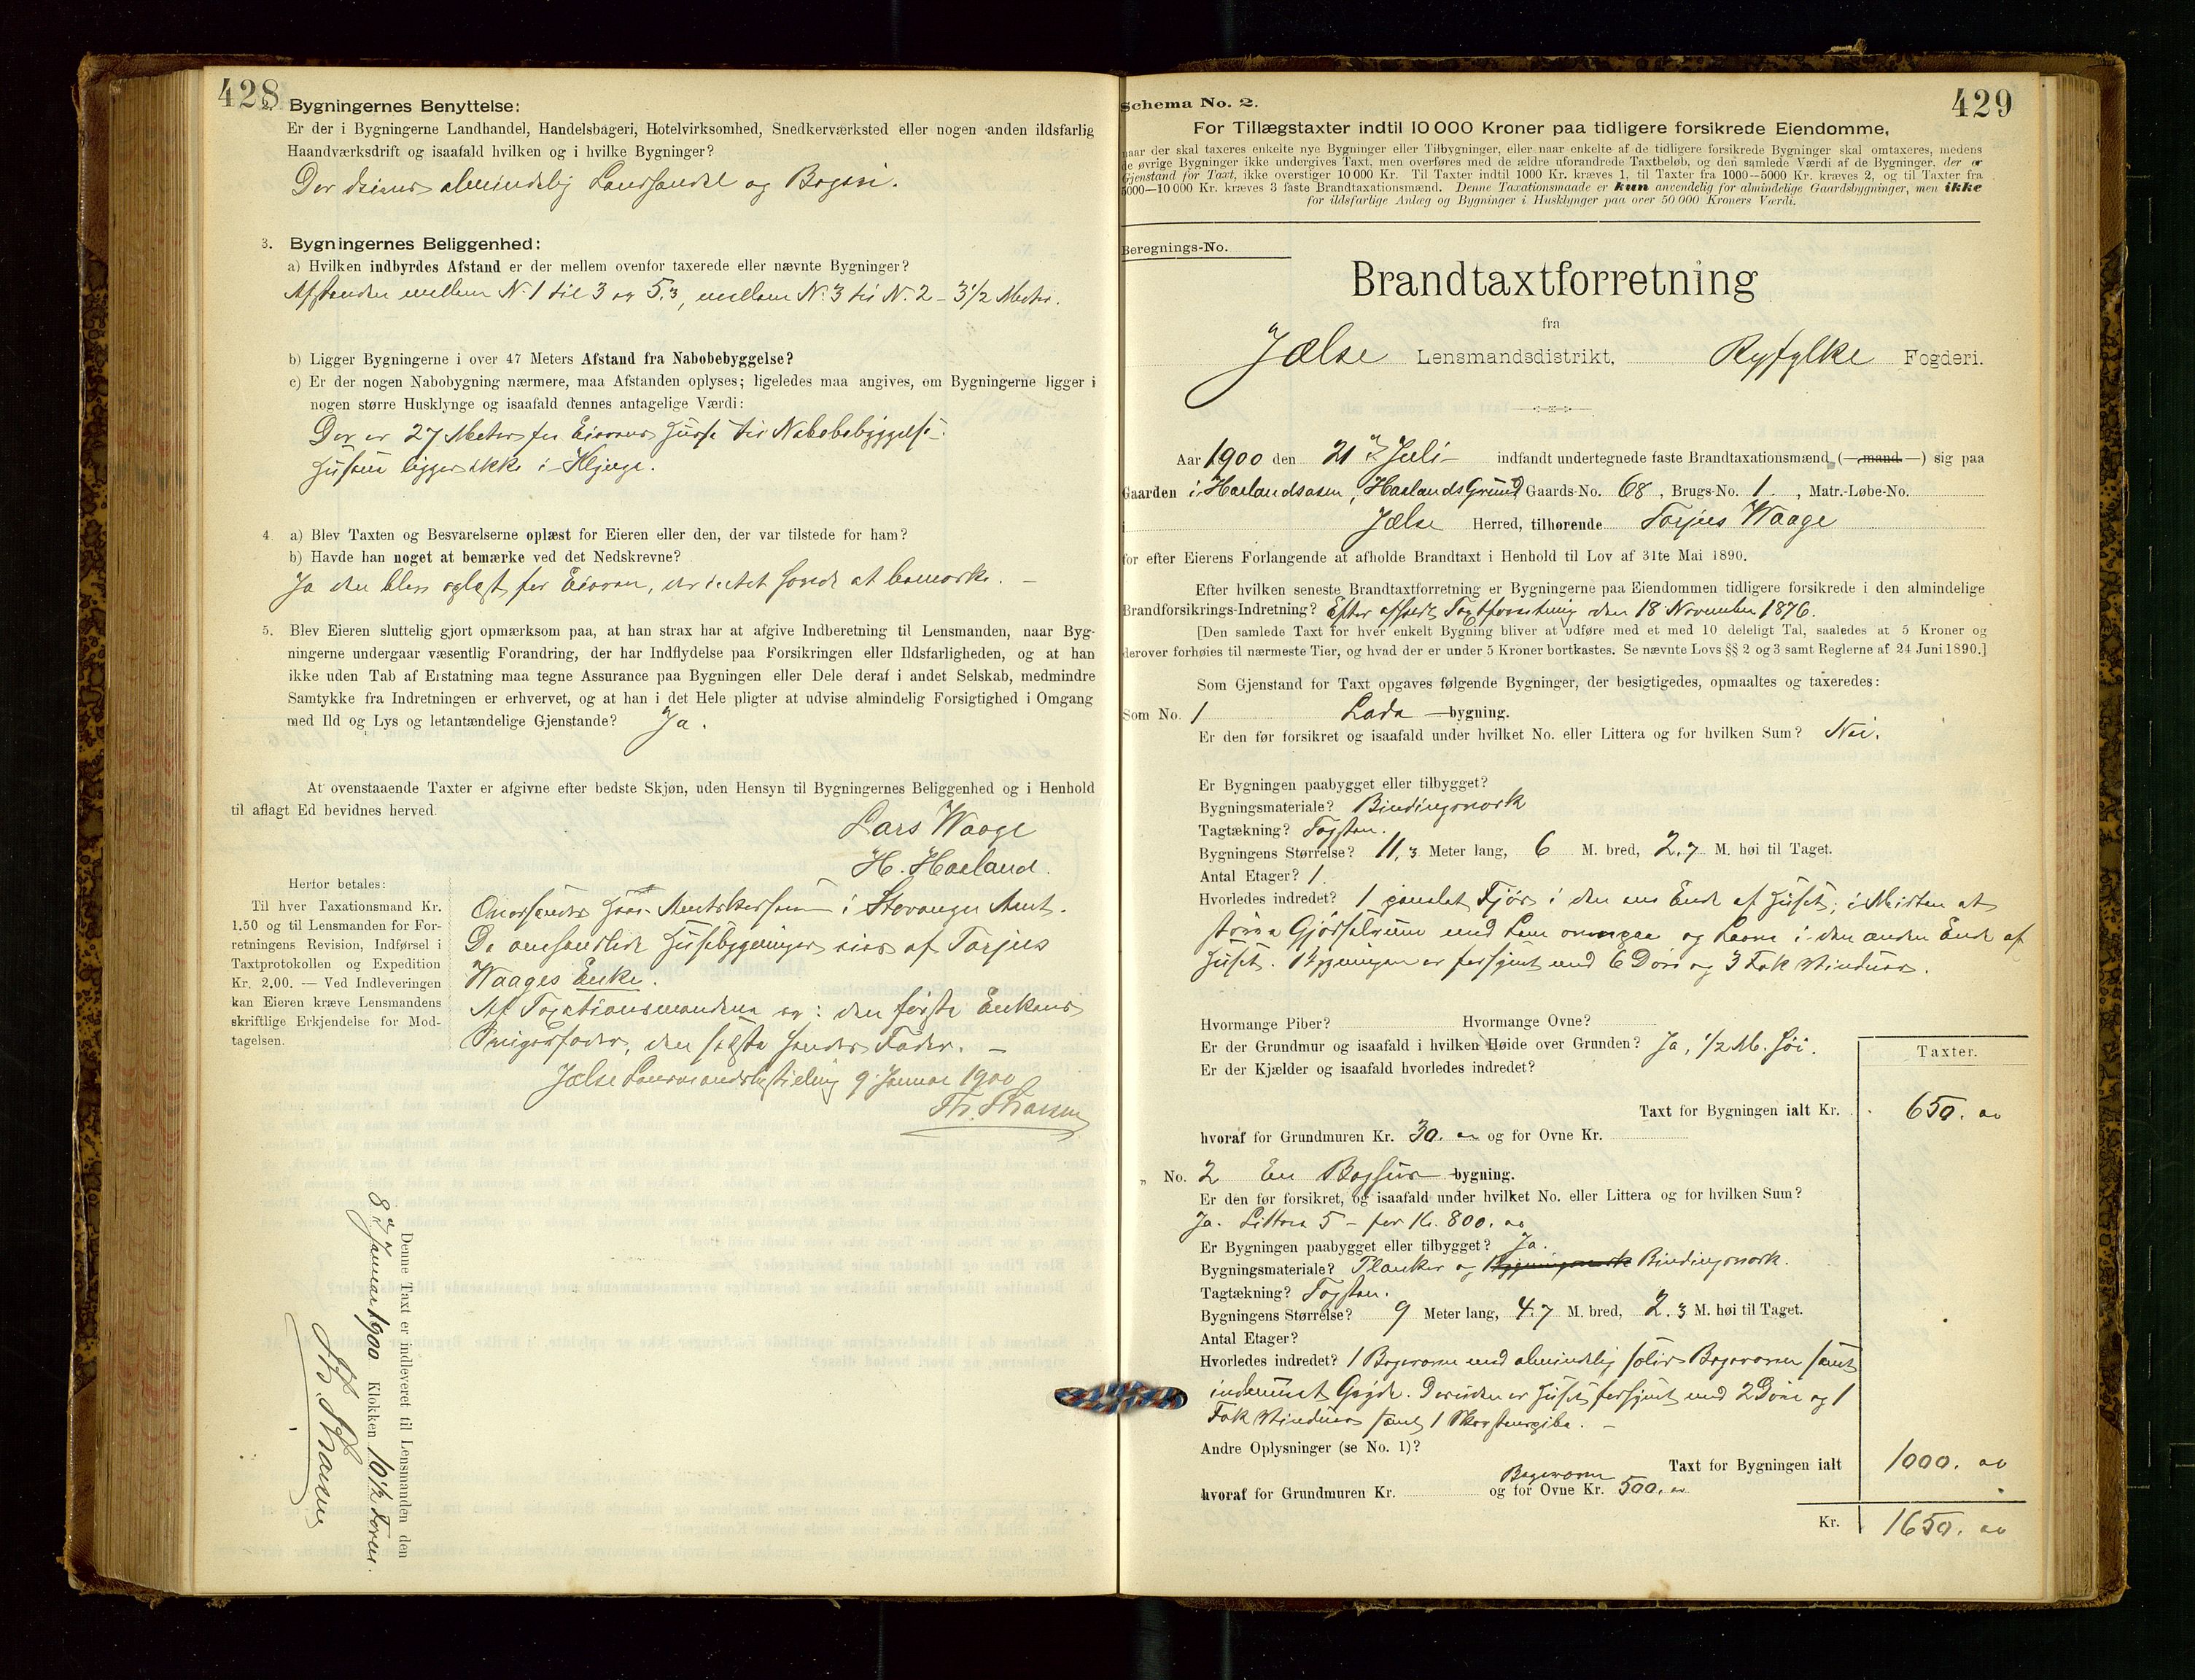 428
2. Bygningernes Benyttelse:
Er der i Bygningerne Landhandel, Handelsbageri, Hotelvirksomhed, Snedkerværksted eller nogen anden ildsfarlig
Haandværksdrift og isaafald hvilken og i hvilke Bygninger?
Der drives almindelig Landhandel og Bageri.
3. Bygningernes Beliggenhed:
a) Hvilken indbyrdes Afstand er der mellem ovenfor taxerede eller nævnte Bygninger?
Afstanden mellem N. 1 til 3 er 5,3, mellem N. 3 til N. 2 - 3 1/2 Meter.
b) Ligger Bygningerne i over 47 Meters Afstand fra Nabobebyggelse?
c) Er der nogen Nabobygning nærmere, maa Afstanden oplyses; ligeledes maa angives, om Bygningerne ligger i
nogen større Husklynge og isaafald dennes antagelige Værdi:
Der er 27 Meter fra Eierens Huse til Nabobebyggelse.
Husene ligger ikke i Klynge.
4. a) Blev Taxten og Besvarelserne oplæst for Eieren eller den, der var tilstede for ham?
b) Havde han noget at bemærke ved det Nedskrevne?
Ja den blev oplæst for Eieren, der intet havde at bemærke. -
5. Blev Eieren sluttelig gjort opmærksom paa, at han strax har at afgive Indberetning til Lensmanden, naar Byg-
ningerne undergaar væsentlig Forandring, der har Indflydelse paa Forsikringen eller Ildsfarligheden, og at han
ikke uden Tab af Erstatning maa tegne Assurance paa Bygningen eller Dele deraf i andet Selskab, medmindre
Samtykke fra Indretningen er erhvervet, og at han i det Hele pligter at udvise almindelig Forsigtighed i Omgang
med Ild og Lys og letantændelige Gjenstande? Ja.
At ovenstaaende Taxter er afgivne efter bedste Skjøn, uden Hensyn til Bygningernes Beliggenhed og i Henhold
til aflagt Ed bevidnes herved.
Lars Waage
H. Haaland.
Herfor betales:
Til hver Taxationsmand Kr.
1.50 og til Lensmanden for For-
retningens Revision, Indførsel i
Taxtprotokollen og Expedition
Kr. 2.00. — Ved Indleveringen
kan Eieren kræve Lensmandens
skriftlige Erkjendelse for Mod-
tagelsen.
Oversendes i Stavanger Amt.
De omhandlede Husebygninger eies af Torjus
Waages Enke.
Af Taxationsmændene er: den første Enkens
Svigerfader, den sidste hendes Fader. -
Jælse Lensmandsbestilling 9 Januar 1900
Denne Taxt er indleveret til Lensmanden den
8de Januar 1900 Klokken 10 1/2 Form.
429
Schema No. 2.
For Tillægstaxter indtil 10 000 Kroner paa tidligere forsikrede Eiendomme,
naar der skal taxeres enkelte nye Bygninger eller Tilbygninger, eller naar enkelte af de tidligere forsikrede Bygninger skal omtaxeres, medens
de øvrige Bygninger ikke undergives Taxt, men overføres med de ældre uforandrede Taxtbeløb, og den samlede Værdi af de Bygninger, der er
Gjenstand for Taxt, ikke overstiger 10 000 Kr. Til Taxter indtil 1000 Kr. kræves 1, til Taxter fra 1000—5000 Kr. kræves 2, og til Taxter fra
5000—10 000 Kr. kræves 3 faste Brandtaxationsmænd. Denne Taxationsmaade er kun anvendelig for almindelige Gaardsbygninger, men ikke
for ildsfarlige Anlæg og Bygninger i Husklynger paa over 50 000 Kroners Værdi.
Beregnings-No.
Brandtaxtforretning
fra
Jælse Lensmandsdistrikt, Ryfylke Fogderi.
Aar 1900 den 21de Juli indfandt undertegnede faste Brandtaxationsmænd (—mand—) sig paa
Gaarden i Haalandsosen, Haalands Grund Gaards-No. 68, Brugs-No. 1, Matr.-Løbe-No.
i Jælse Herred, tilhørende Torjus Waage
for efter Eierens Forlangende at afholde Brandtaxt i Henhold til Lov af 31te Mai 1890.
Efter hvilken seneste Brandtaxtforretning er Bygningerne paa Eiendommen tidligere forsikrede i den almindelige
Brandforsikrings-Indretning? Efter afholdt Taxtforretning den 18 November 1876.
[Den samlede Taxt for hver enkelt Bygning bliver at udføre med et med 10 deleligt Tal, saaledes at 5 Kroner og
derover forhøies til nærmeste Tier, og hvad der er under 5 Kroner bortkastes. Se nævnte Lovs §§ 2 og 3 samt Reglerne af 24 Juni 1890.]
Som Gjenstand for Taxt opgaves følgende Bygninger, der besigtigedes, opmaaltes og taxeredes:
Som No. 1 Lada bygning.
Er den før forsikret og isaafald under hvilket No. eller Littera og for hvilken Sum? Nei.
Er Bygningen paabygget eller tilbygget?
Bygningsmateriale? Bindingsværk
Tagtækning? Tagsten.
Bygningens Størrelse? 11,3 Meter lang, 6 M. bred, 2,7 M. høi til Taget.
Antal Etager? 1
Hvorledes indredet? 1 panelet Fjøs i den ene Ende af Huset; i Midten et
større Gjødselrum med Lem ovenpaa og Laave i den anden Ende af
Huset. Bygningen er forsynet med 6 Døre og 3 Fak Vinduer.
Hvormange Piber? Hvormange Ovne?
Er der Grundmur og isaafald i hvilken Høide over Grunden? Ja, 1/2 M. høi.
Er der Kjælder og isaafald hvorledes indredet?
Taxter.
Taxt for Bygningen ialt Kr. 650. 00
hvoraf for Grundmuren Kr. 30. 00 og for Ovne Kr.
„ No. 2 En Baghus bygning.
Er den før forsikret, og isaafald under hvilket No. eller Littera og for hvilken Sum?
Ja. Littera 5 - for Kr. 800. 00
Er Bygningen paabygget eller tilbygget? Ja.
Bygningsmateriale? Planker og Bindingsværk.
Tagtækning? Tagsten.
Bygningens Størrelse? 9 Meter lang, 4.7 M. bred, 2.3 M. høi til Taget.
Antal Etager?
Hvorledes indredet? 1 Bagerovn med almindelig solid Bagerovn samt
indemuret Gryde. Desuden er Huset forsynet med 2 Døre og 1
Fak Vinduer samt 1 Skorstenspibe. -
Andre Oplysninger (se No. 1)?
Taxt for Bygningen ialt 1000. 00
Bagerovn
hvoraf for Grundmuren Kr. og for Ovne Kr. 500. 00
Kr. 1650. 00